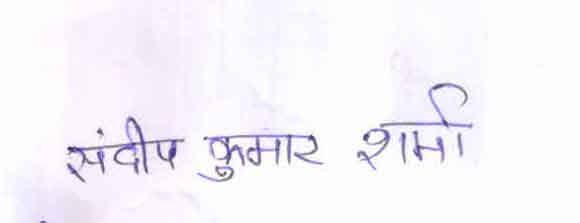 संदीप कुमार शर्मा